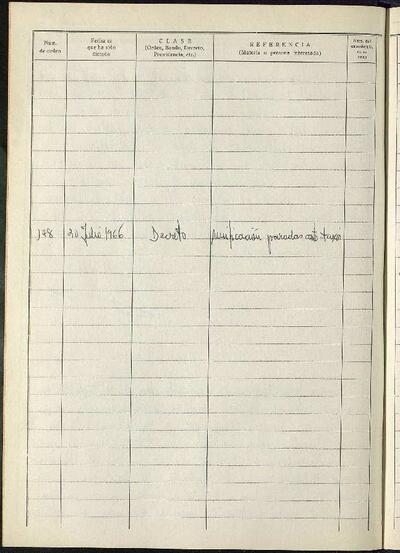 Núm. de orden
Fecha en que ha sido dictado
CLASE
(Orden, Bando, Decreto, Providencia, etc.)
REFERENCIA
(Materia o persona interesada)
178 20 Julio 1966 Decreto unificación paradas